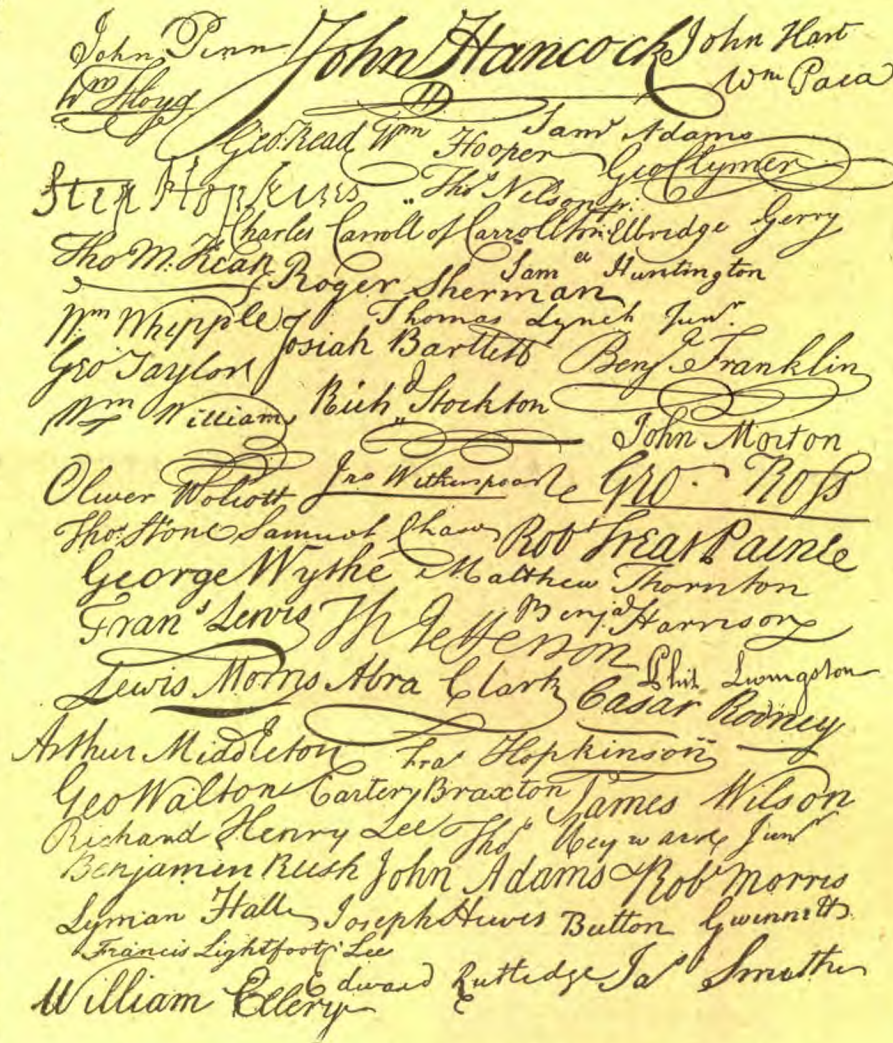 John Penn John Hancock John Hart
Wm Floyd Wm Paca
Geo. Read Wm Hooper Saml Adams
Geo Clymer
Step Hopkins Thos Nelson jr.
Charles Carroll of Carrollton Elbridge Gerry
Tho M. Kean Roger Sherman Samel Huntington
Wm Whipple Thomas Lynch Junr.
Josiah Bartlett Benja Franklin
Geo Taylor
Wm Williams Richd Stockton
John Morton
Oliver Wolcott Jno Witherspoon Geo. Ross
Thos Stone Samuel Chase Robt Treat Paine
George Wythe Matthew Thornton
Frans Lewis Th Jefferson Benja Harrison
Lewis Morris Abra Clark Phil. Livingston
Cæsar Rodney
Arthur Middleton Fras Hopkinson
Geo Walton Carter Braxton James Wilson
Richard Henry Lee Thos Heyward Junr
Benjamin Rush John Adams Robt Morris
Lyman Hall Joseph Hewes Button Gwinnett
Francis Lightfoot Lee
William Ellery Edward Rutledge Jas Smith